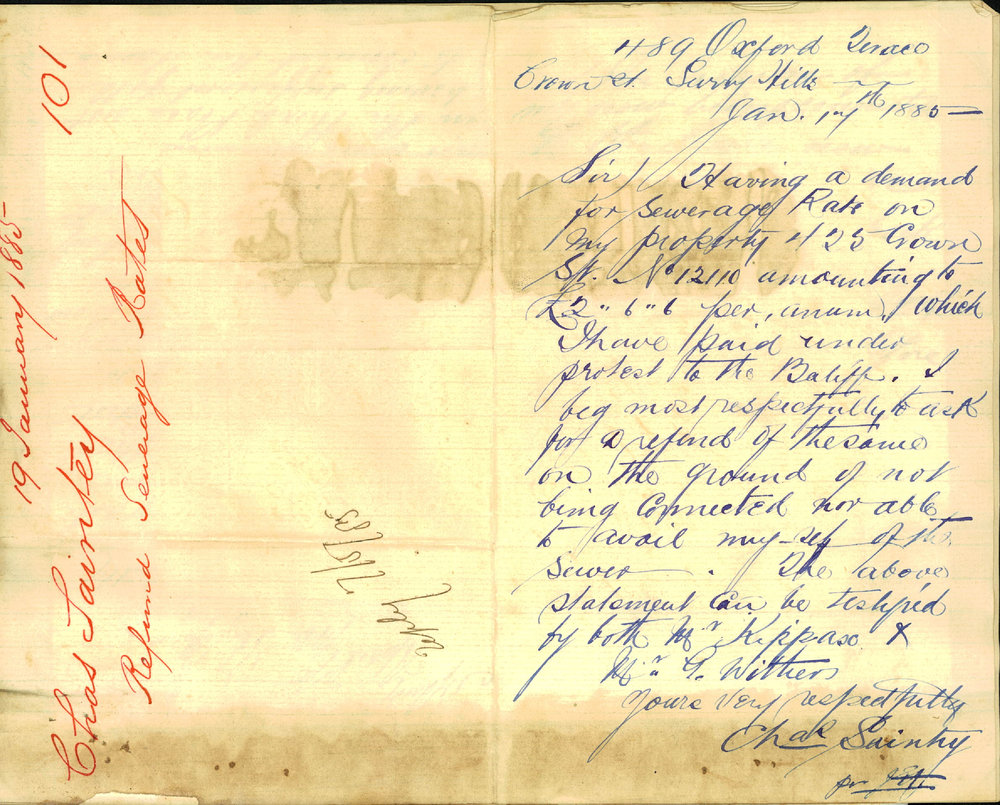 101
19 January 1885
Chas Saintey
Refund Sewerage Rates
7/5/85
489 Oxford Terace
Crown St. Surry Hills
Jan. 17th 1885
Sir/ Having a demand
for Sewerage Rate on
my property 425 Crown
St. No 12110 amounting to
£2 " 6 " 6 per, anum, which
I have paid under
protest to the Baliff. I
beg most respectfully to ask
for a refund of the same
on the ground of not
being Connected nor able
to avail my-self of the
Sewer. The above
statement can be testified
by both Mr Kippax &
Mr G. Withers
Yours Very respectfully
Chas Sainty
per